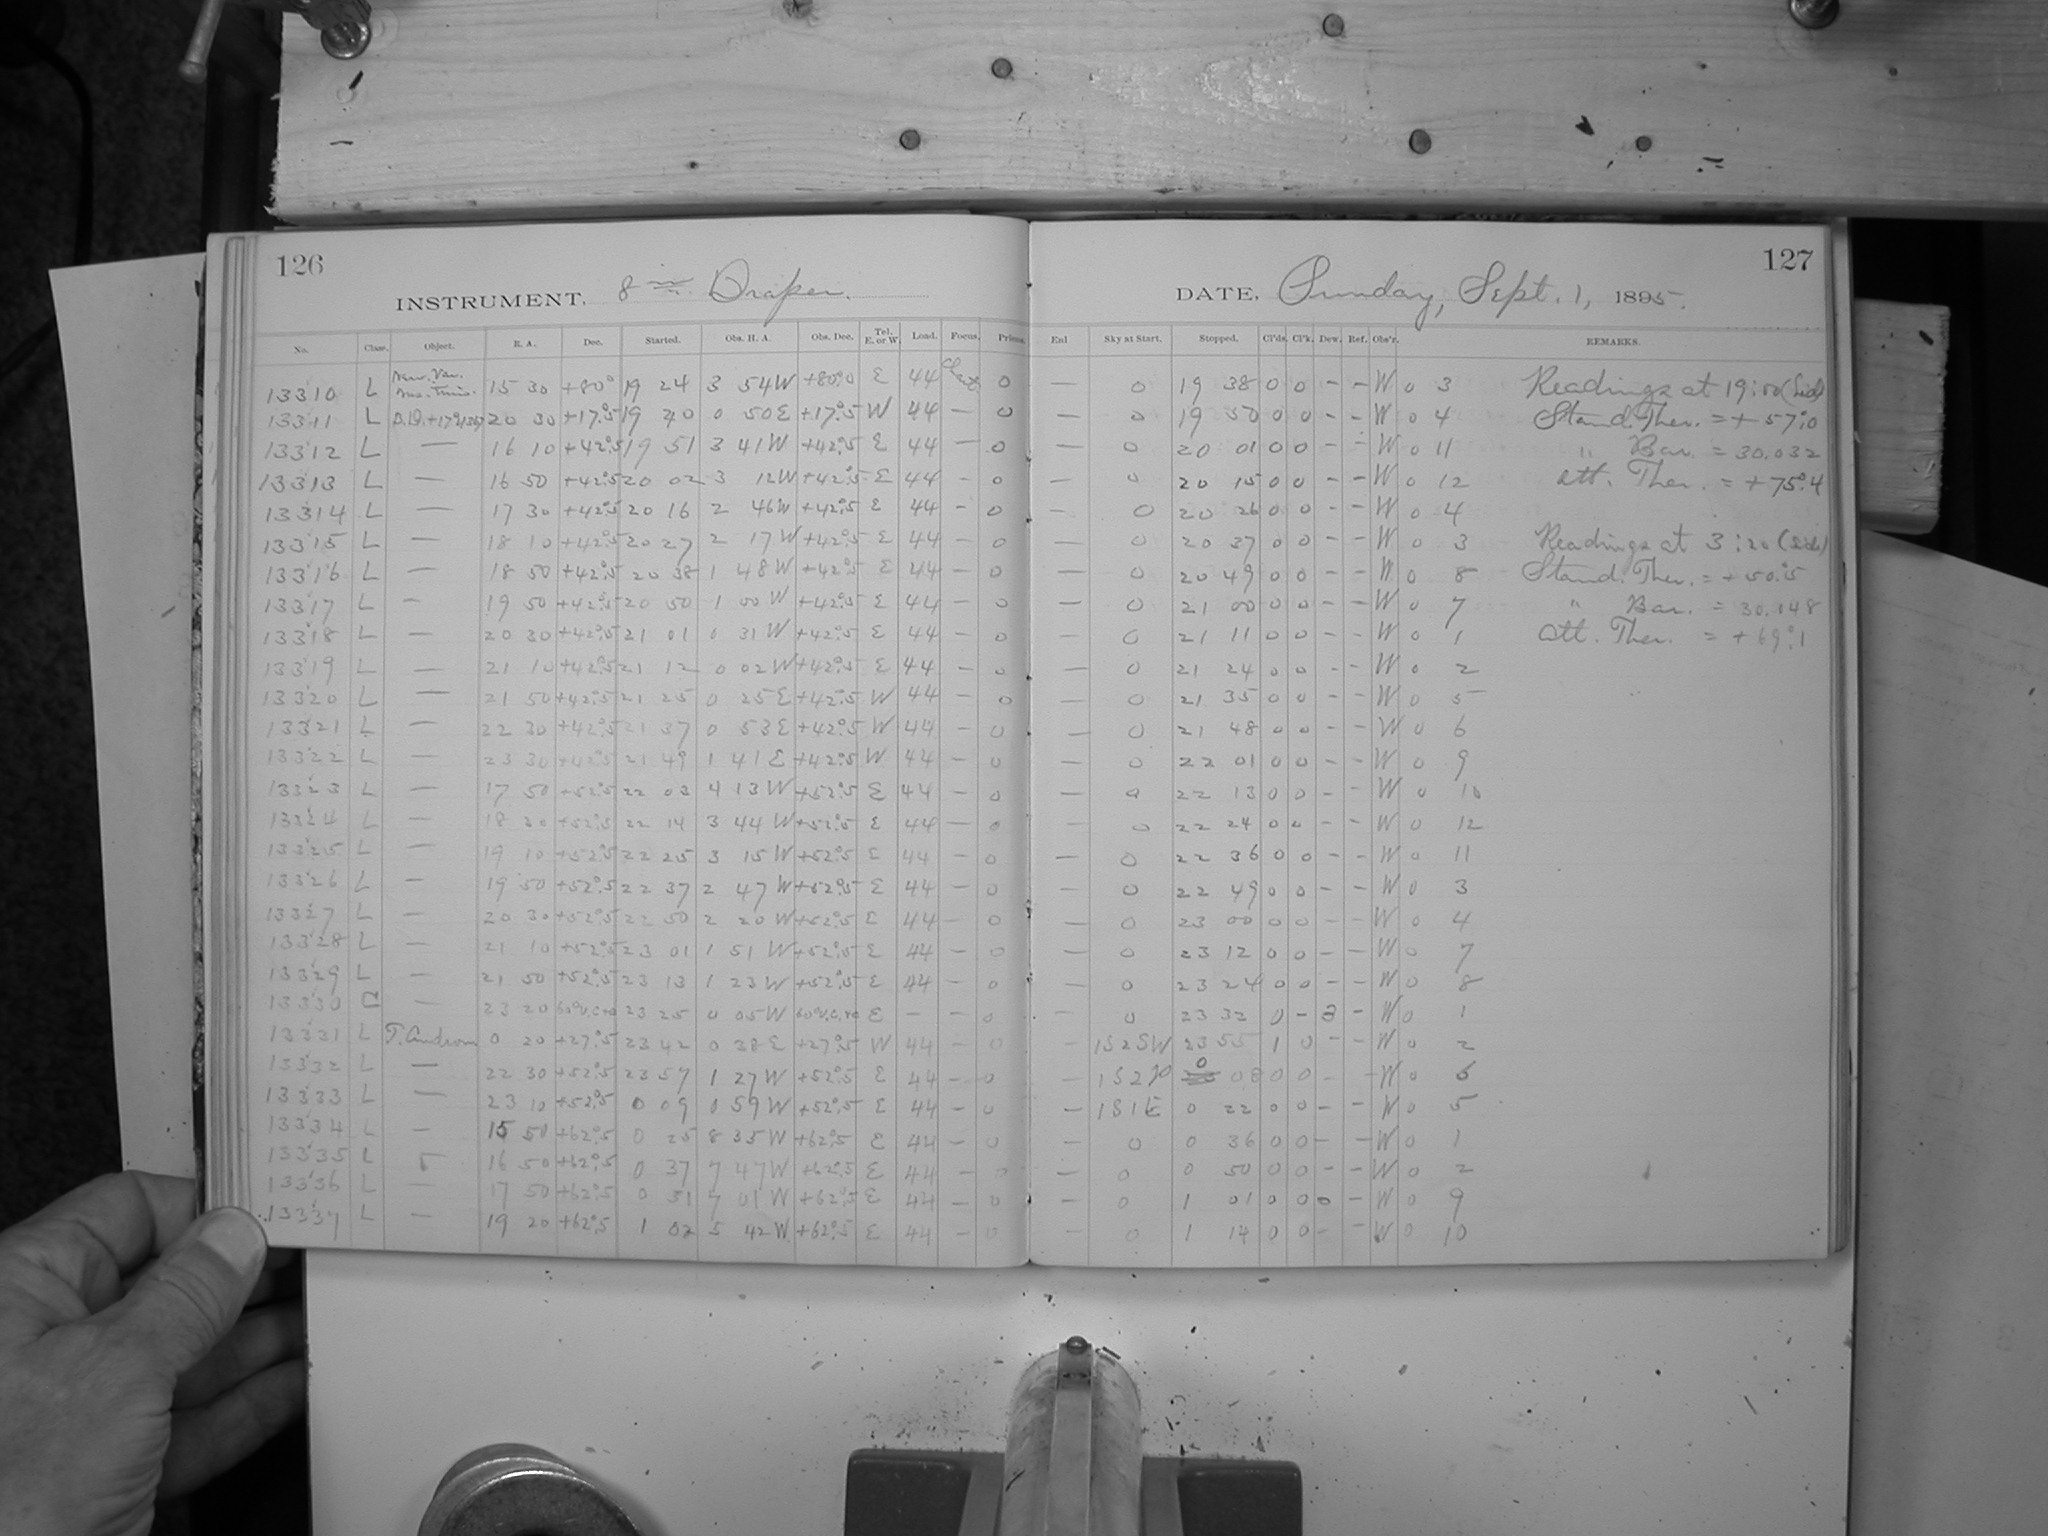 126
INSTRUMENT. 8 in. Draper.
No. Class. Object. R. A. Dec. Started. Obs. H. A. Obs. Dec. Tel. E. or W. Load. Focus. Prisms
13310 L New. Var. 15 30 +80° 19 24 3 54 W +80°0 E 44 0
13311 L 20 30 +17°.5 19 40 0 50 E +17°.5 W 44 — 0
13312 L — 16 10 +42°.5 19 51 3 41 W +42°.5 E 44 — 0
13313 L — 16 50 +42°.5 20 02 3 12 W +42°.5 E 44 — 0
13314 L — 17 30 +42°.5 20 16 2 46 W +42°.5 E 44 — 0
13315 L — 18 10 +42°.5 20 27 2 17 W +42°.5 E 44 — 0
13316 L — 18 50 +42°.5 20 38 1 48 W +42°.5 E 44 — 0
13317 L — 19 50 +42°.5 20 50 1 00 W +42°.5 E 44 — 0
13318 L — 20 30 +42°.5 21 01 0 31 W +42°.5 E 44 — 0
13319 L — 21 10 +42°.5 21 12 0 02 W +42°.5 E 44 — 0
13320 L — 21 50 +42°.5 21 25 0 25 E +42°.5 W 44 — 0
13321 L — 22 30 +42°.5 21 37 0 53 E +42°.5 W 44 — 0
13322 L — 23 30 +42°.5 21 49 1 41 E +42°.5 W 44 — 0
13323 L — 17 50 +52°.5 22 03 4 13 W +52°.5 E 44 — 0
13324 L — 18 30 +52°.5 22 14 3 44 W +52°.5 E 44 — 0
13325 L — 19 10 +52°.5 22 25 3 15 W +52°.5 E 44 — 0
13326 L — 19 50 +52°.5 22 37 2 47 W +52°.5 E 44 — 0
13327 L — 20 30 +52°.5 22 50 2 20 W +52°.5 E 44 — 0
13328 L — 21 10 +52°.5 23 01 1 51 W +52°.5 E 44 — 0
13329 L — 21 50 +52°.5 23 13 1 23 W +52°.5 E 44 — 0
13330 C — 23 20 23 25 0 05 W E — — 0
13331 L T. Androm 0 20 +27°.5 23 42 0 38 E +27°.5 W 44 — 0
13332 L — 22 30 +52°.5 23 57 1 27 W +52°.5 E 44 — 0
13333 L — 23 10 +52°.5 0 09 0 59 W +52°.5 E 44 — 0
13334 L — 15 50 +62°.5 0 25 8 35 W +62°.5 E 44 — 0
13335 L 16 50 +62°.5 0 37 7 47 W +62°.5 E 44 — 0
13336 L — 17 50 +62°.5 0 51 7 01 W +62°.5 E 44 — 0
13337 L — 19 20 +62°.5 1 02 5 42 W +62°.5 E 44 — 0
127
DATE, Sunday, Sept. 1, 1895.
Enl Sky at Start. Stopped. Cl'ds. Cl'k. Dew. Ref. Obs'r. REMARKS.
— 0 19 38 0 0 – – W 0 3 Readings at 19:00 (Sid)
— 0 19 50 0 0 – – W 0 4 Stand. Ther. = + 57°.0
— 0 20 01 0 0 – – W 0 11 " Bar. = 30.032
— 0 20 15 0 0 – – W 0 12 Att. Ther. = + 75°.4
— 0 20 26 0 0 – – W 0 4
— 0 20 37 0 0 – – W 0 3 Readings at 3:20 (Sid)
— 0 20 49 0 0 – – W 0 8 Stand. Ther. = + 50°.5
— 0 21 00 0 0 – – W 0 7 " Bar. = 30.148
— 0 21 11 0 0 – – W 0 1 Att. Ther. = + 69°.1
— 0 21 24 0 0 – – W 0 2
— 0 21 35 0 0 – – W 0 5
— 0 21 48 0 0 – – W 0 6
— 0 22 01 0 0 – – W 0 9
— 0 22 13 0 0 – – W 0 10
— 0 22 24 0 0 – – W 0 12
— 0 22 36 0 0 – – W 0 11
— 0 22 49 0 0 – – W 0 3
— 0 23 00 0 0 – – W 0 4
— 0 23 12 0 0 – – W 0 7
— 0 23 24 0 0 – – W 0 8
0 23 32 0 – 3 – W 0 1
— 1S2SW 23 55 1 0 – – W 0 2
— 0 08 0 0 – – W 0 6
— 1S1E 0 22 0 0 – – W 0 5
— 0 0 36 0 0 – – W 0 1
— 0 0 50 0 0 – – W 0 2
— 0 1 01 0 0 0 – W 0 9
— 0 1 14 0 0 – – W 0 10